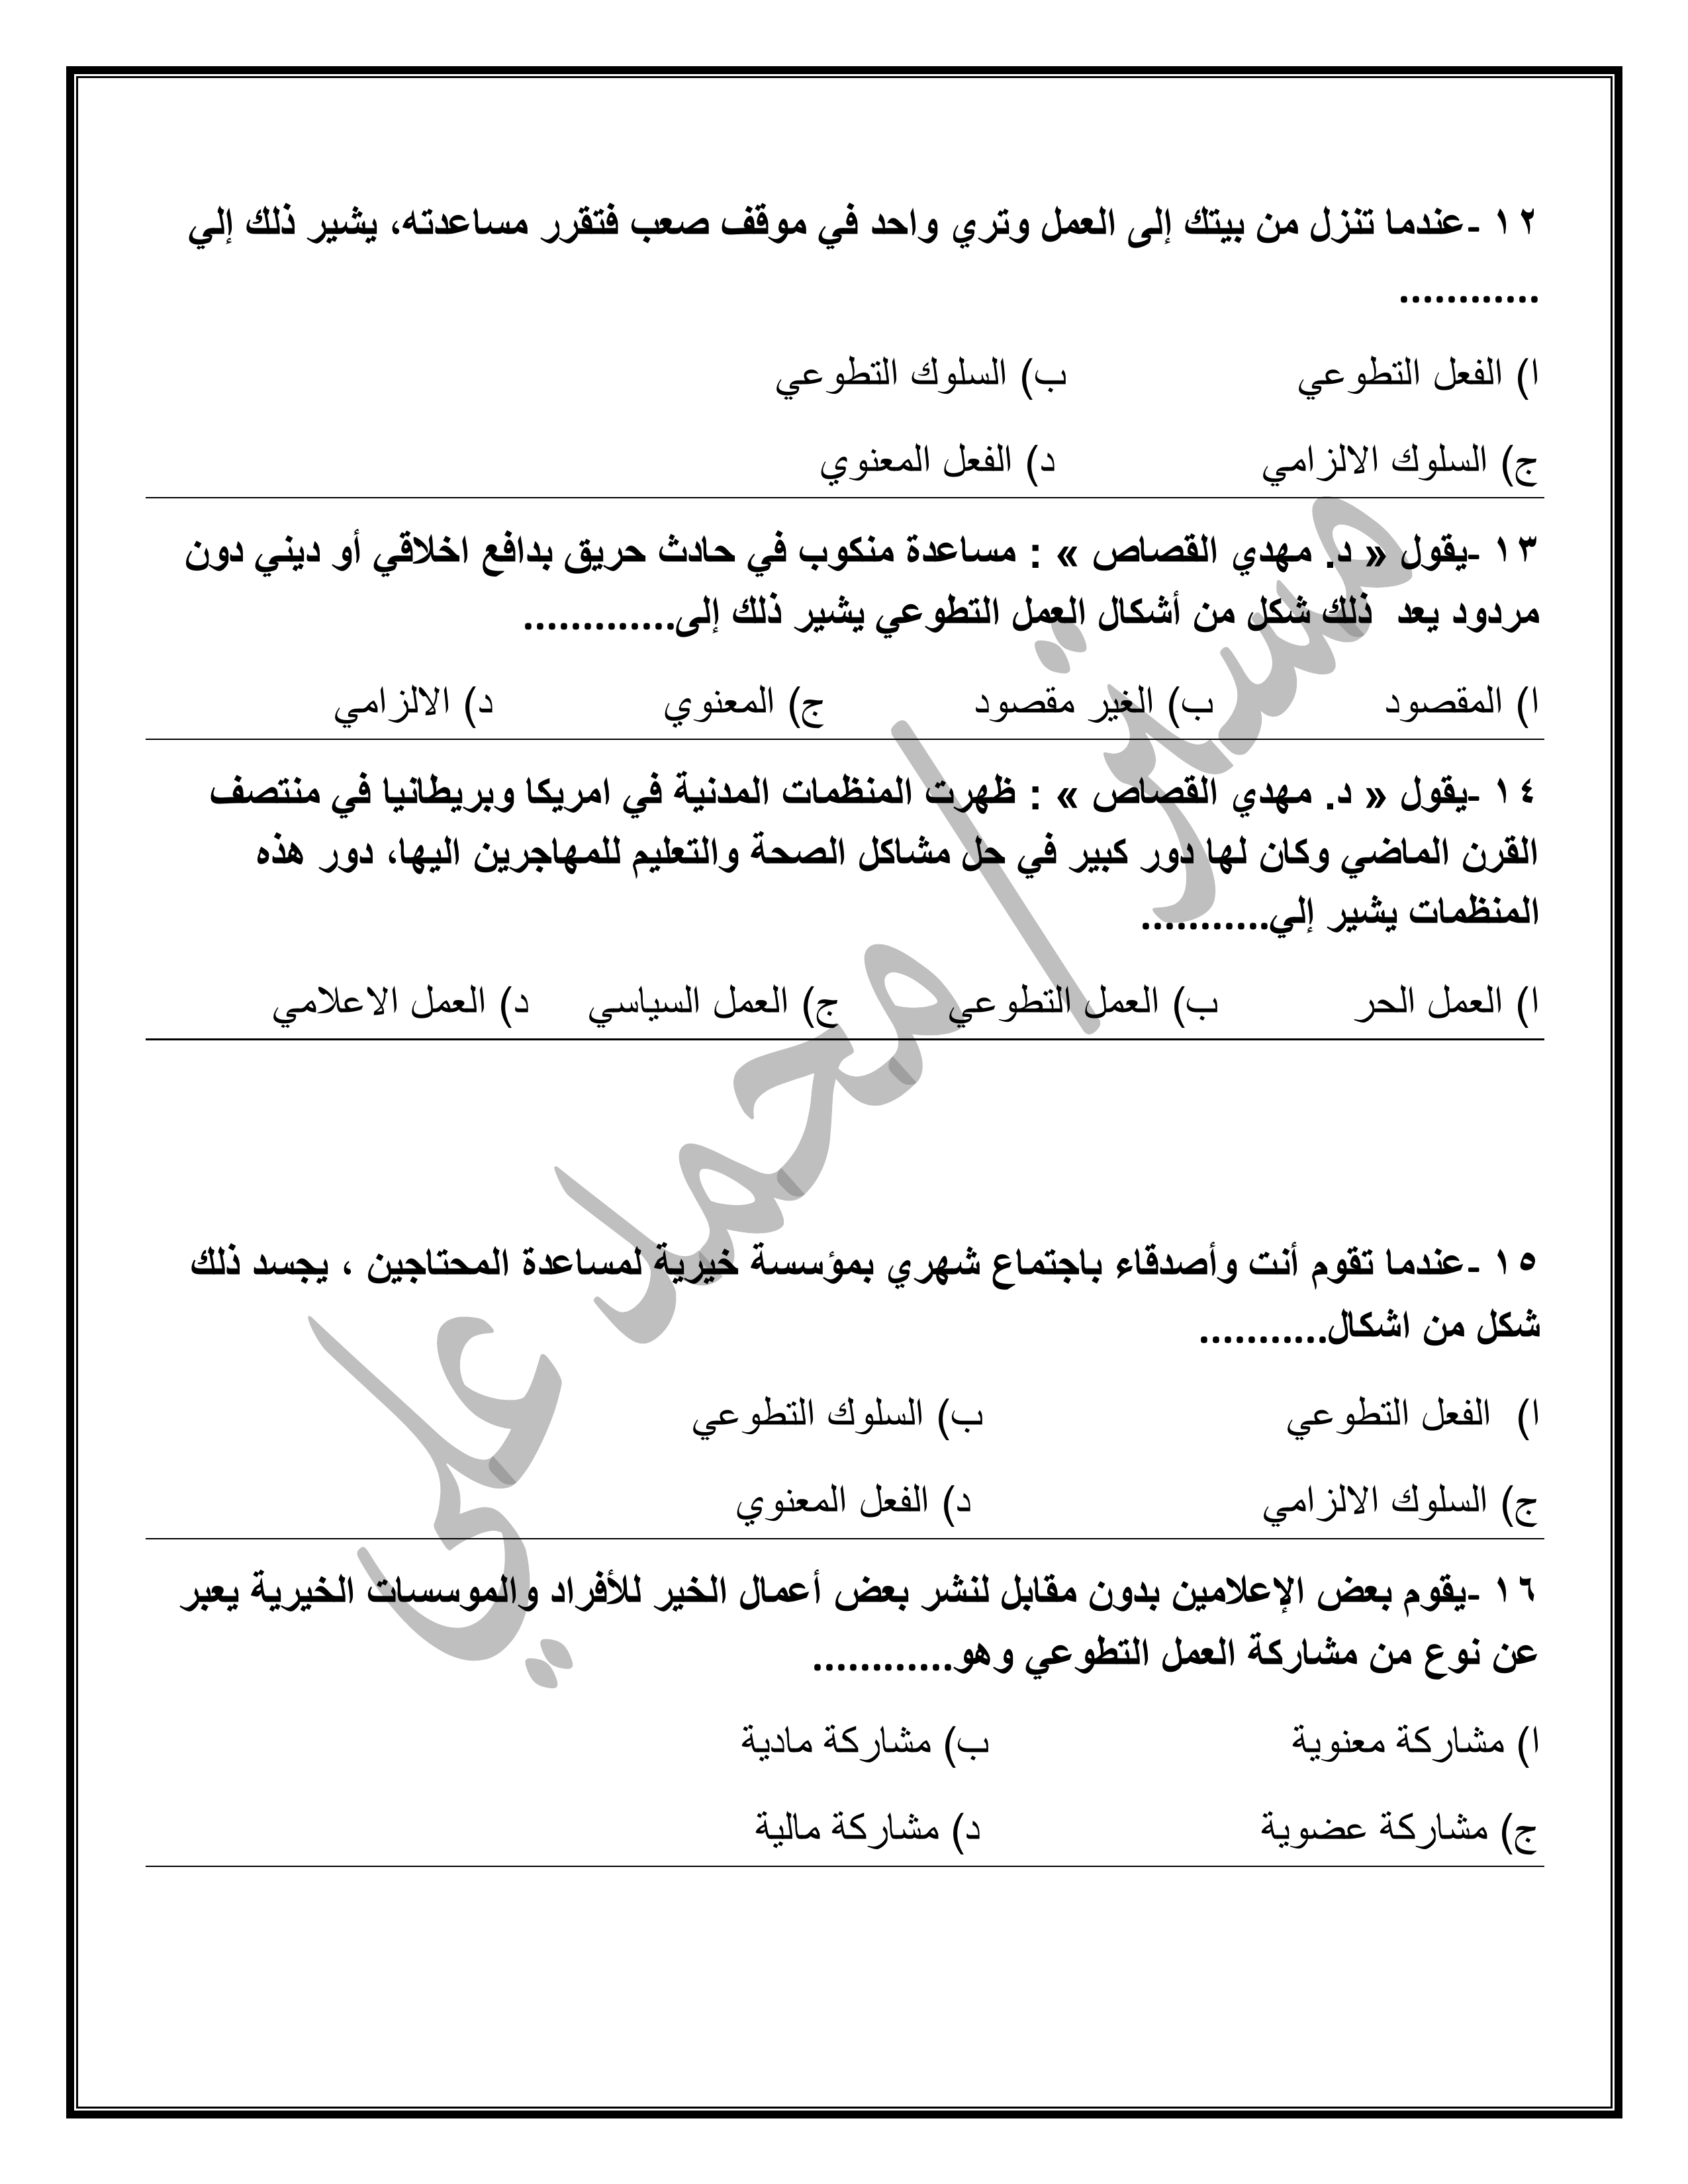 ١٢ -عندما تنزل من بيتك إلى العمل وتري واحد في موقف صعب فتقرر مساعدته، يشير ذلك إلي
............
ا) الفعل التطوعي ب) السلوك التطوعي
ج) السلوك الالزامي د) الفعل المعنوي
١٣ -يقول « د. مهدي القصاص » : مساعدة منكوب في حادث حريق بدافع اخلاقي أو ديني دون
مردود يعد ذلك شكل من أشكال العمل التطوعي يشير ذلك إلى.............
ا) المقصود ب) الغير مقصود ج) المعنوي د) الالزامي
١٤ -يقول « د. مهدي القصاص » : ظهرت المنظمات المدنية في امريكا وبريطانيا في منتصف
القرن الماضي وكان لها دور كبير في حل مشاكل الصحة والتعليم للمهاجرين اليها، دور هذه
المنظمات يشير إلي...........
ا) العمل الحر ب) العمل التطوعي ج) العمل السياسي د) العمل الاعلامي
١٥ -عندما تقوم أنت وأصدقاء باجتماع شهري بمؤسسة خيرية لمساعدة المحتاجين ، يجسد ذلك
شكل من اشكال...........
ا) الفعل التطوعي ب) السلوك التطوعي
ج) السلوك الالزامي د) الفعل المعنوي
١٦ -يقوم بعض الإعلامين بدون مقابل لنشر بعض أعمال الخير للأفراد والموسسات الخيرية يعبر
عن نوع من مشاركة العمل التطوعي وهو............
ا) مشاركة معنوية ب) مشاركة مادية
ج) مشاركة عضوية د) مشاركة مالية
مستر/ محمد علي